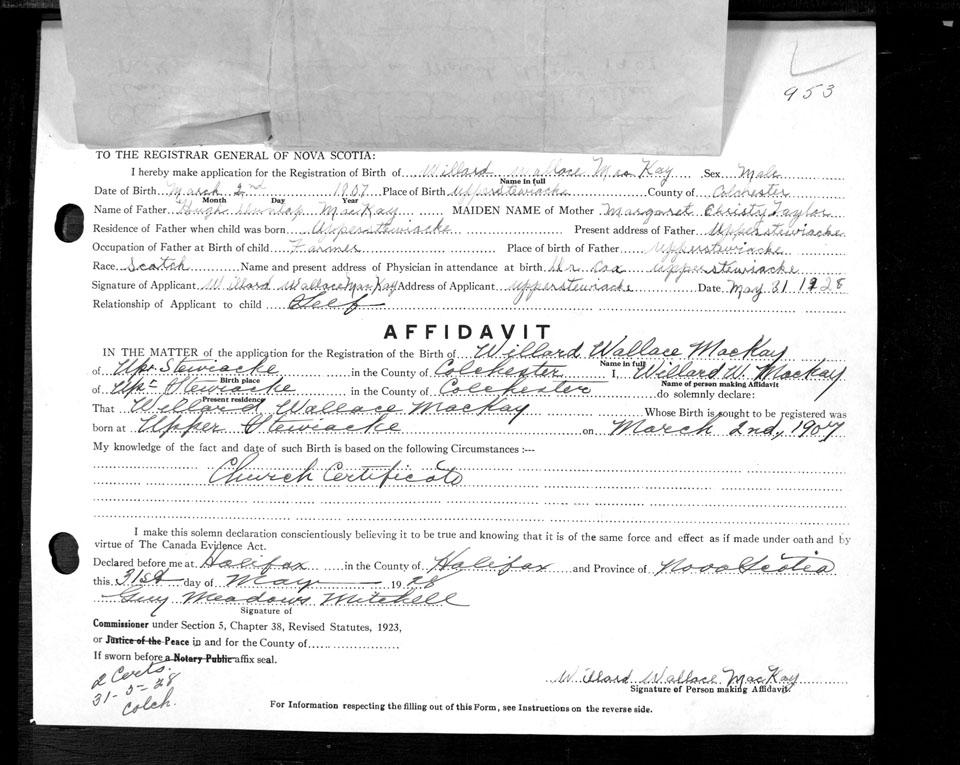 953
TO THE REGISTRAR GENERAL OF NOVA SCOTIA:
I hereby make application for the Registration of Birth of Willard Wallace MacKay Sex Male
Name in full
Date of Birth March 2nd 1907 Place of Birth Upperstewiacke County of Colchester
Month Day Year
Name of Father Hugh Dunlap MacKay MAIDEN NAME of Mother Margaret Christy Taylor
Residence of Father when child was born Upperstewiacke Present address of Father Upperstewiacke
Occupation of Father at Birth of child Farmer Place of birth of Father Upperstewiacke
Race Scotch Name and present address of Physician in attendance at birth Dr Cox Upperstewiacke
Signature of Applicant Willard Wallace MacKay Address of Applicant Upperstewiacke Date May 31 1928
Relationship of Applicant to child Self
AFFIDAVIT
IN THE MATTER of the application for the Registration of the Birth of Willard Wallace MacKay
Name in full
of Upr Stewiacke in the County of Colchester I, Willard W. MacKay
Birth place Name of person making Affidavit
of Upr Stewiacke in the County of Colchester do solemnly declare:
Present residence
That Willard Wallace MacKay Whose Birth is sought to be registered was
born at Upper Stewiacke on March 2nd, 1907
My knowledge of the fact and date of such Birth is based on the following Circumstances :---
Church Certificate
I make this solemn declaration conscientiously believing it to be true and knowing that it is of the same force and effect as if made under oath and by
virtue of The Canada Evidence Act.
Declared before me at Halifax in the County of Halifax and Province of Nova Scotia
this 31st day of May 1928
Guy Meadows Mitchell
Signature of
Commissioner under Section 5, Chapter 38, Revised Statutes, 1923,
or Justice of the Peace in and for the County of
If sworn before a Notary Public affix seal.
2 Certs.
31-5-28
Colch.
Willard Wallace MacKay
Signature of Person making Affidavit.
For Information respecting the filling out of this Form, see Instructions on the reverse side.